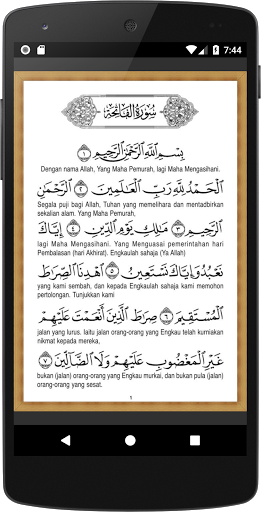 7:44
سُورَةُ الْفَاتِحَةِ
بِسْمِ اللَّهِ الرَّحْمَٰنِ الرَّحِيمِ ١
Dengan nama Allah, Yang Maha Pemurah, lagi Maha Mengasihani.
الْحَمْدُ لِلَّهِ رَبِّ الْعَالَمِينَ ٢ الرَّحْمَٰنِ
Segala puji bagi Allah, Tuhan yang memelihara dan mentadbirkan
sekalian alam. Yang Maha Pemurah,
الرَّحِيمِ ٣ مَالِكِ يَوْمِ الدِّينِ ٤ إِيَّاكَ
lagi Maha Mengasihani. Yang Menguasai pemerintahan hari
Pembalasan (hari Akhirat). Engkaulah sahaja (Ya Allah)
نَعْبُدُ وَإِيَّاكَ نَسْتَعِينُ ٥ اهْدِنَا الصِّرَاطَ
yang kami sembah, dan kepada Engkaulah sahaja kami memohon
pertolongan. Tunjukkan kami
الْمُسْتَقِيمَ ٦ صِرَاطَ الَّذِينَ أَنْعَمْتَ عَلَيْهِمْ
jalan yang lurus. Iaitu jalan orang-orang yang Engkau telah kurniakan
nikmat kepada mereka,
غَيْرِ الْمَغْضُوبِ عَلَيْهِمْ وَلَا الضَّالِّينَ ٧
bukan (jalan) orang-orang yang Engkau murkai, dan bukan pula (jalan)
orang-orang yang sesat.
1